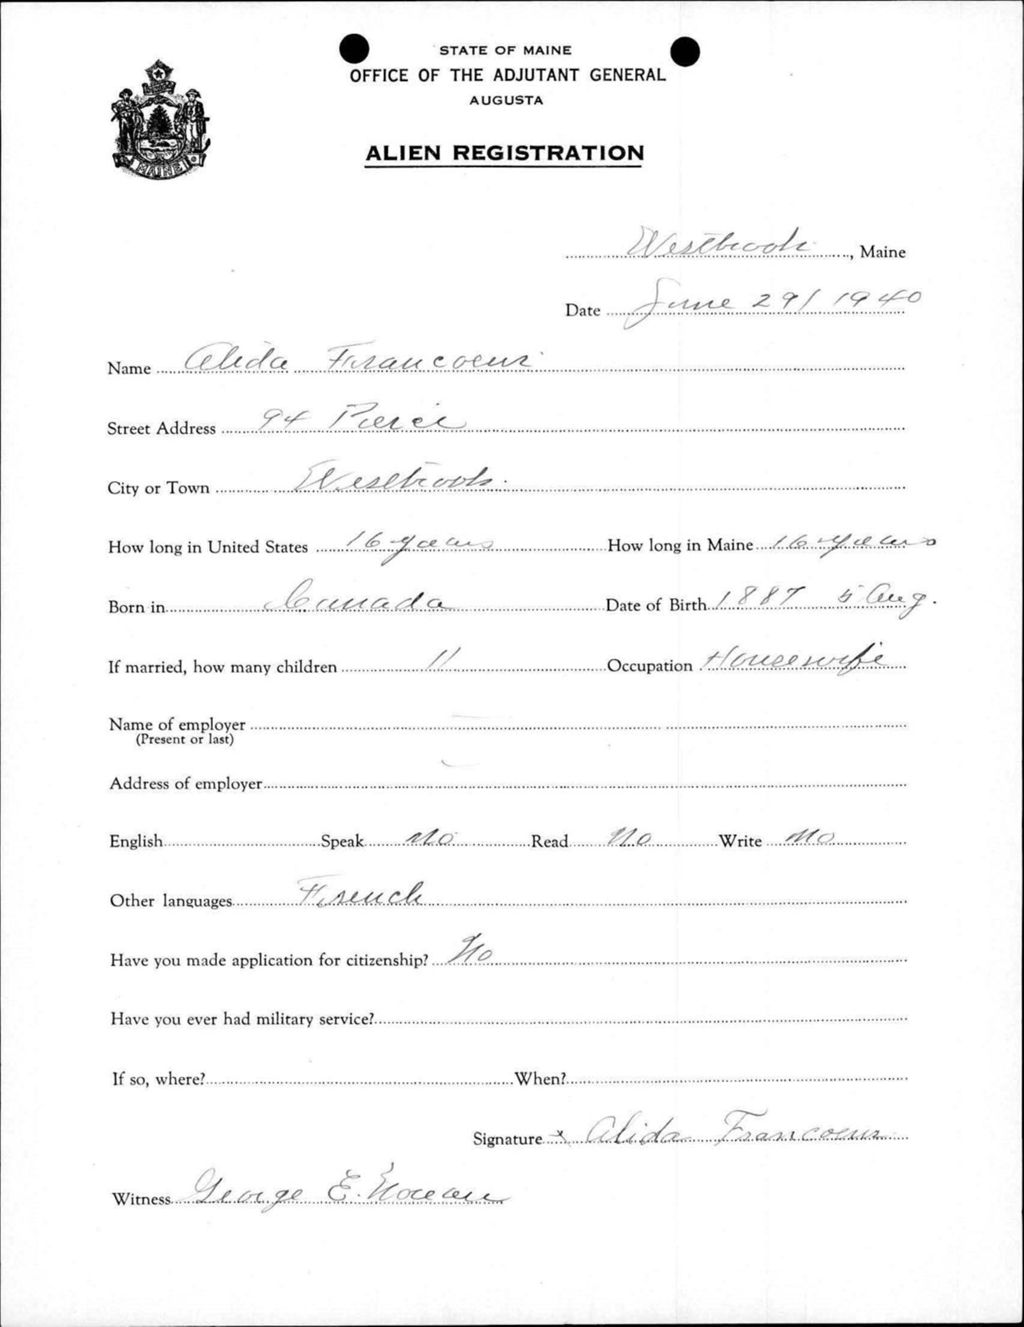 STATE OF MAINE
OFFICE OF THE ADJUTANT GENERAL
AUGUSTA
ALIEN REGISTRATION
MAINE
Westbrook, Maine
Date June 29/1940
Name Alida Francoeur
Street Address 94 Pierce
City or Town Westbrook.
How long in United States 16 years How long in Maine 16 years
Born in Canada Date of Birth 1887 5 Aug.
If married, how many children 11 Occupation Housewife
Name of employer
(Present or last)
Address of employer
English Speak No Read No Write No
Other languages French
Have you made application for citizenship? No
Have you ever had military service?
If so, where? When?
Signature x Alida Francoeur
Witness George E. Noreau